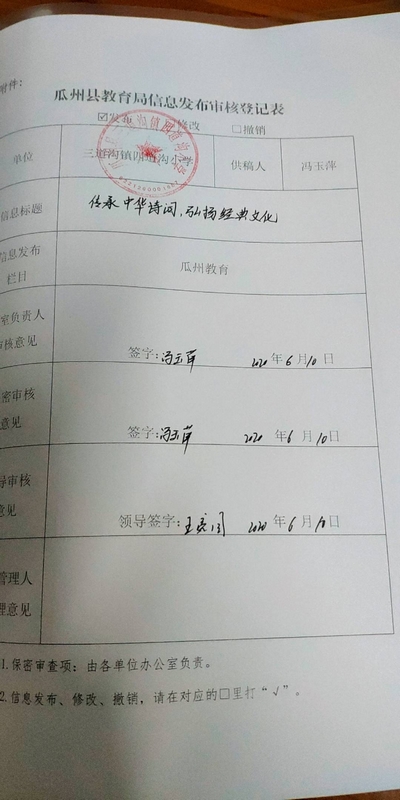 附件:
瓜州县教育局信息发布审核登记表
☑发布 修改 □撤销
单位 三道沟镇四道沟小学 供稿人 冯玉萍
信息标题 传承中华诗词,弘扬经典文化
信息发布
栏目 瓜州教育
室负责人
审核意见 签字:冯玉萍 2020年6月10日
密审核
意见 签字:冯玉萍 2020年6月10日
导审核
意见 领导签字: 2020年6月10日
管理人
理意见
1.保密审查项:由各单位办公室负责。
2.信息发布、修改、撤销,请在对应的□里打“√”。